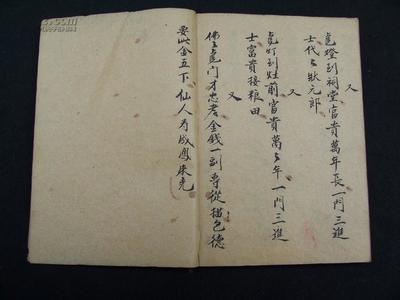 又
龙燈到祠堂富貴萬年長一門三進
士代々狀元郎
又
龙灯到灶前富貴萬々年一門三進
士富貴接粮田
又
佛主龙门才忠君金钱一副専從描包德
要此金五下仙人为成鳳来克